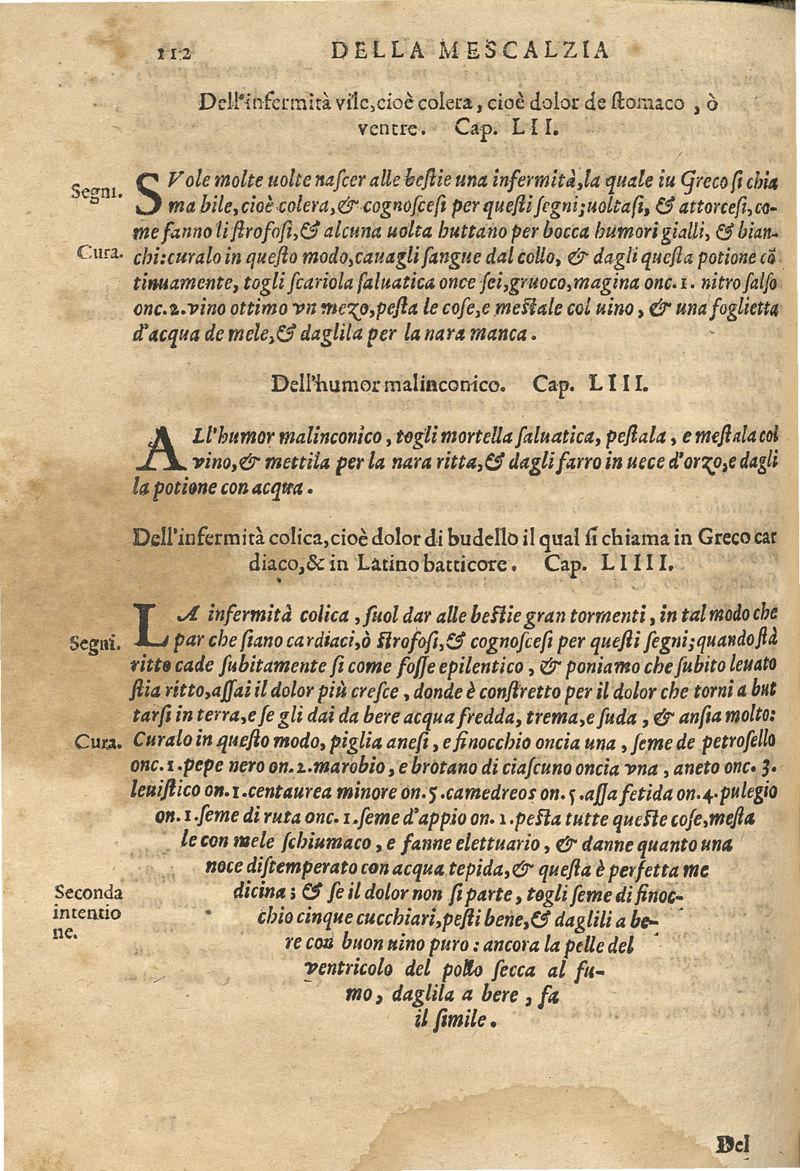 112 DELLA MESCALZIA
Dell'infermità vile, cioè colera, cioè dolor de stomaco, ò
ventre. Cap. LII.
Segni.
SVole molte uolte nascer alle bestie una infermità, la quale iu Greco si chia
ma bile, cioè colera, & cognoscesi per questi segni; uoltasi, & attorcesi, co-
me fanno li strofosi, & alcuna uolta buttano per bocca humori gialli, & bian-
Cura.
chi: curalo in questo modo, cauagli sangue dal collo, & dagli questa potione cō
tinuamente, togli scariola saluatica once sei, gruoco, magina onc. 1. nitro salso
onc. 2. vino ottimo vn mezo, pesta le cose, e mestale col uino, & una foglietta
d'acqua de mele, & daglila per la nara manca.
Dell'humor malinconico. Cap. LIII.
ALl'humor malinconico, togli mortella saluatica, pestala, e mestala col
vino, & mettila per la nara ritta, & dagli farro in uece d'orzo, e dagli
la potione con acqua.
Dell'infermità colica, cioè dolor di budello il qual si chiama in Greco car
diaco, & in Latino batticore. Cap. LIIII.
LA infermità colica, suol dar alle bestie gran tormenti, in tal modo che
Segni.
par che siano cardiaci, ò strofosi, & cognoscesi per questi segni; quando stà
ritto cade subitamente si come fosse epilentico, & poniamo che subito leuato
stia ritto, assai il dolor più cresce, donde è constretto per il dolor che torni a but
tarsi in terra, e se gli dai da bere acqua fredda, trema, e suda, & ansia molto:
Cura.
Curalo in questo modo, piglia anesi, e finocchio oncia una, seme de petrosello
onc. 1. pepe nero on. 2. marobio, e brotano di ciascuno oncia vna, aneto onc. 3.
leuistico on. 1. centaurea minore on. 5. camedreos on. 5. assa fetida on. 4. pulegio
on. 1. seme di ruta onc. 1. seme d'appio on. 1. pesta tutte queste cose, mesta
le con mele schiumaco, e fanne elettuario, & danne quanto una
noce distemperato con acqua tepida, & questa è perfetta me
Seconda
intentio
ne.
dicina; & se il dolor non si parte, togli seme di finoc-
chio cinque cucchiari, pesti bene, & daglili a be-
re con buon uino puro: ancora la pelle del
ventricolo del pollo secca al fu-
mo, daglila a bere, fa
il simile.
Del